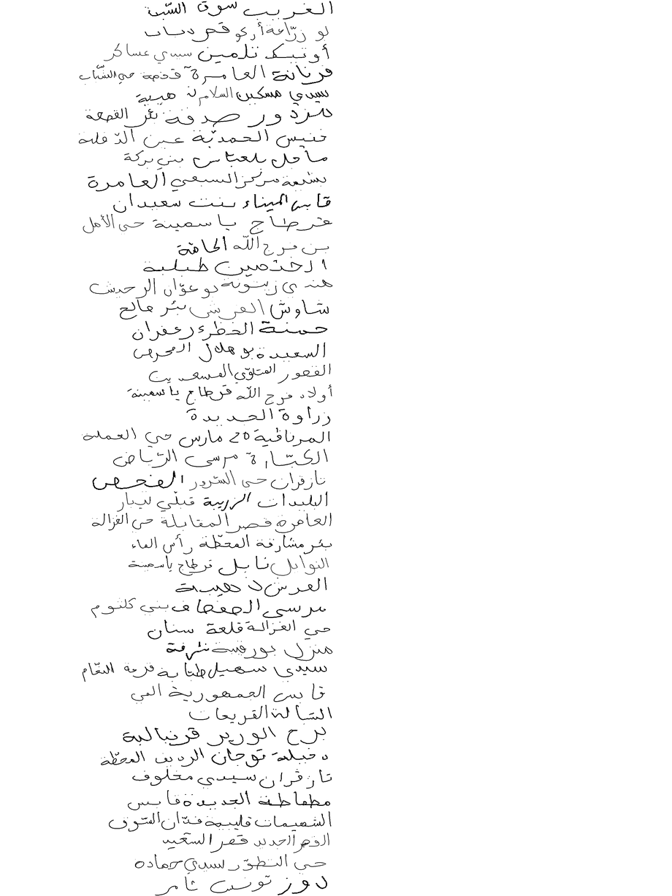 الغريب سوق السبت
لو زرّاعة أركو قصر دبسات
أوتيك تلمين سيدي عساكر
فرنانة العامرة قفصة حي الشباب
سيدي مسكين السلام ذهيبة
مزدور صدقة بئر القصعة
خنيس الحمديّة عين الدفلة
ماطل بلعبّاس بني بركة
بشيمة مركز السبيعي العامرة
قابس الميناء بنت سعيدان
قرطاج ياسمينة حي الأمل
بن فرج الله الحافة
الختمين طبلبة
هندي زيتونة بو عوّان الرحيش
شاوش العريش بئر مالح
حسينة الخظراء زعفران
السعيدة بوهلال المحرص
القصور المتلوّي
أولاد فرج الله قرطاج ياسمينة
زراوة الحديدة
المرناقية 20 مارس حي العملة
الكبّارة مرسى الرّياض
تازغران حي السرور الفحص
البليدات الزريبة قبلّي نيبار
العامرة قصر المقابلة حي الغزالة
بئر مشارقة المحطّة رأس الماء
النوايل نابل قرطاج ياسمينة
العرش ذهيبة
مرسى الصفصاف بني كلثوم
حي الغزالة قلعة سنان
منزل بورقيبة شرقة
سيدي سهيل طبّابة قرية السّقام
قابس الجمهورية العين
الشّالة القريعات
برج الوزير قرنبالية
دخيلة توجان الرديف المحطّة
تازغران سيدي مخلوف
مطماطة الجديدة قابس
الشعيمات قليبية فدّان السّوق
القصر الجديد قصر السعيد
حي التطوّر سيدي حمادة
دوز تونس ثامر